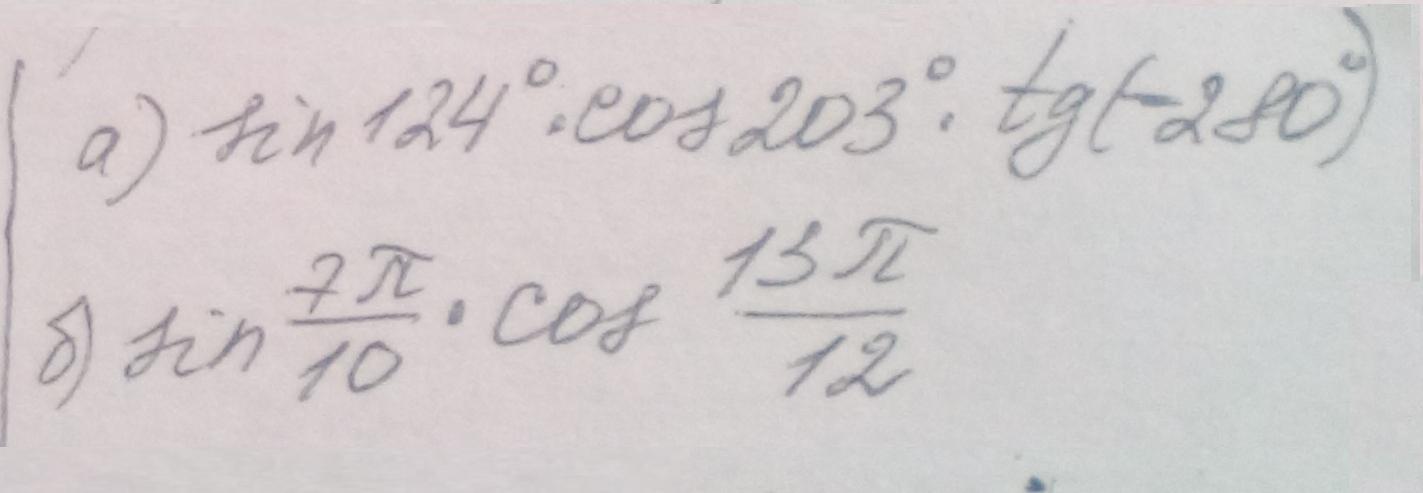 а) sin 124° · cos 203° · tg(-280°)
б) sin 7π/10 · cos 13π/12